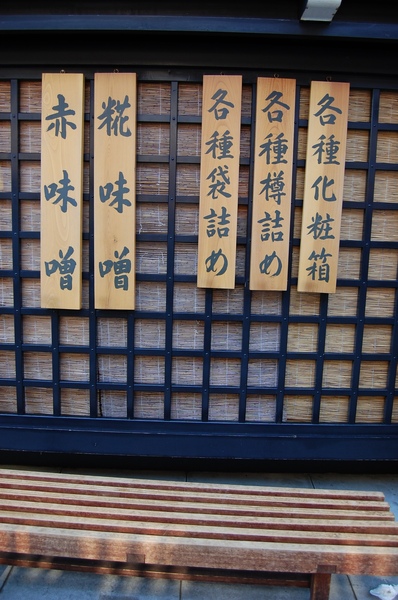 各種化粧箱
各種樽詰め
各種袋詰め
糀味噌
赤味噌